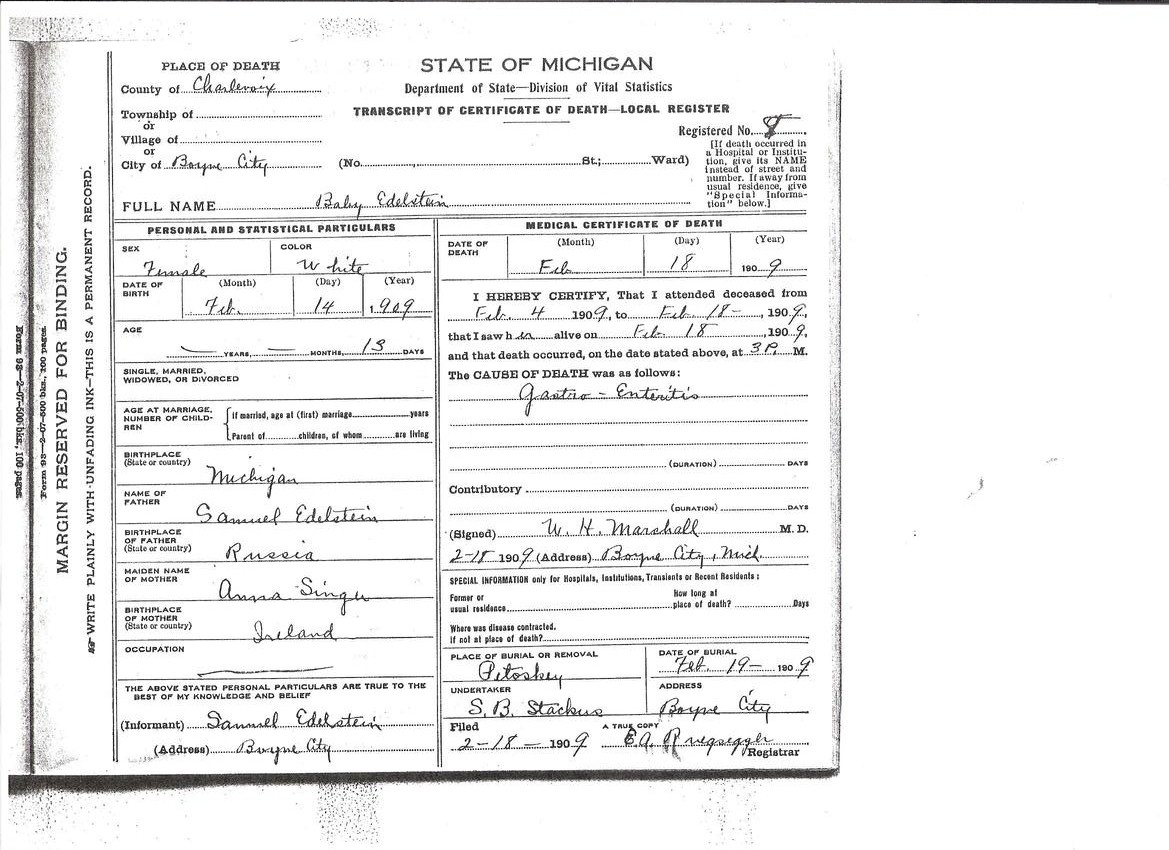 PLACE OF DEATH
County of Charlevoix
Township of
or
Village of
or
City of Boyne City
STATE OF MICHIGAN
Department of State—Division of Vital Statistics
TRANSCRIPT OF CERTIFICATE OF DEATH—LOCAL REGISTER
Registered No. 8
(No. , St.; Ward)
[If death occurred in
a Hospital or Institu-
tion, give its NAME
instead of street and
number. If away from
usual residence, give
"Special Informa-
tion" below.]
FULL NAME Baby Edelstein
PERSONAL AND STATISTICAL PARTICULARS
SEX Female
COLOR White
DATE OF BIRTH
(Month) (Day) (Year)
Feb. 14 1909
AGE
— YEARS, — MONTHS, 13 DAYS
SINGLE, MARRIED,
WIDOWED, OR DIVORCED
AGE AT MARRIAGE,
NUMBER OF CHILD-
REN
If married, age at (first) marriage years
Parent of children, of whom are living
BIRTHPLACE
(State or country)
Michigan
NAME OF
FATHER
Samuel Edelstein
BIRTHPLACE
OF FATHER
(State or country)
Russia
MAIDEN NAME
OF MOTHER
Anna Singer
BIRTHPLACE
OF MOTHER
(State or country)
Ireland
OCCUPATION
THE ABOVE STATED PERSONAL PARTICULARS ARE TRUE TO THE
BEST OF MY KNOWLEDGE AND BELIEF
(Informant) Samuel Edelstein
(Address) Boyne City
MEDICAL CERTIFICATE OF DEATH
DATE OF
DEATH
(Month) (Day) (Year)
Feb 18 1909
I HEREBY CERTIFY, That I attended deceased from
Feb. 4 1909, to Feb. 18 -, 1909,
that I saw her alive on Feb 18, 1909,
and that death occurred, on the date stated above, at 3 P. M.
The CAUSE OF DEATH was as follows:
Gastro - Enteritis
(DURATION) DAYS
Contributory
(DURATION) DAYS
(Signed) W. H. Marshall M. D.
2-18 1909 (Address) Boyne City, Mich
SPECIAL INFORMATION only for Hospitals, Institutions, Transients or Recent Residents:
Former or
usual residence
How long at
place of death? Days
Where was disease contracted.
if not at place of death?
PLACE OF BURIAL OR REMOVAL
Petoskey
DATE OF BURIAL
Feb. 19 - 1909
UNDERTAKER
S. B. Stackus
ADDRESS
Boyne City
Filed
2-18 - 1909
A TRUE COPY
E.A. Ruegsegger
Registrar
MARGIN RESERVED FOR BINDING.
WRITE PLAINLY WITH UNFADING INK—THIS IS A PERMANENT RECORD.
Form 93—2-07-500 bks., 100 pages.
Form 93—2-07-500 bks., 100 pages.